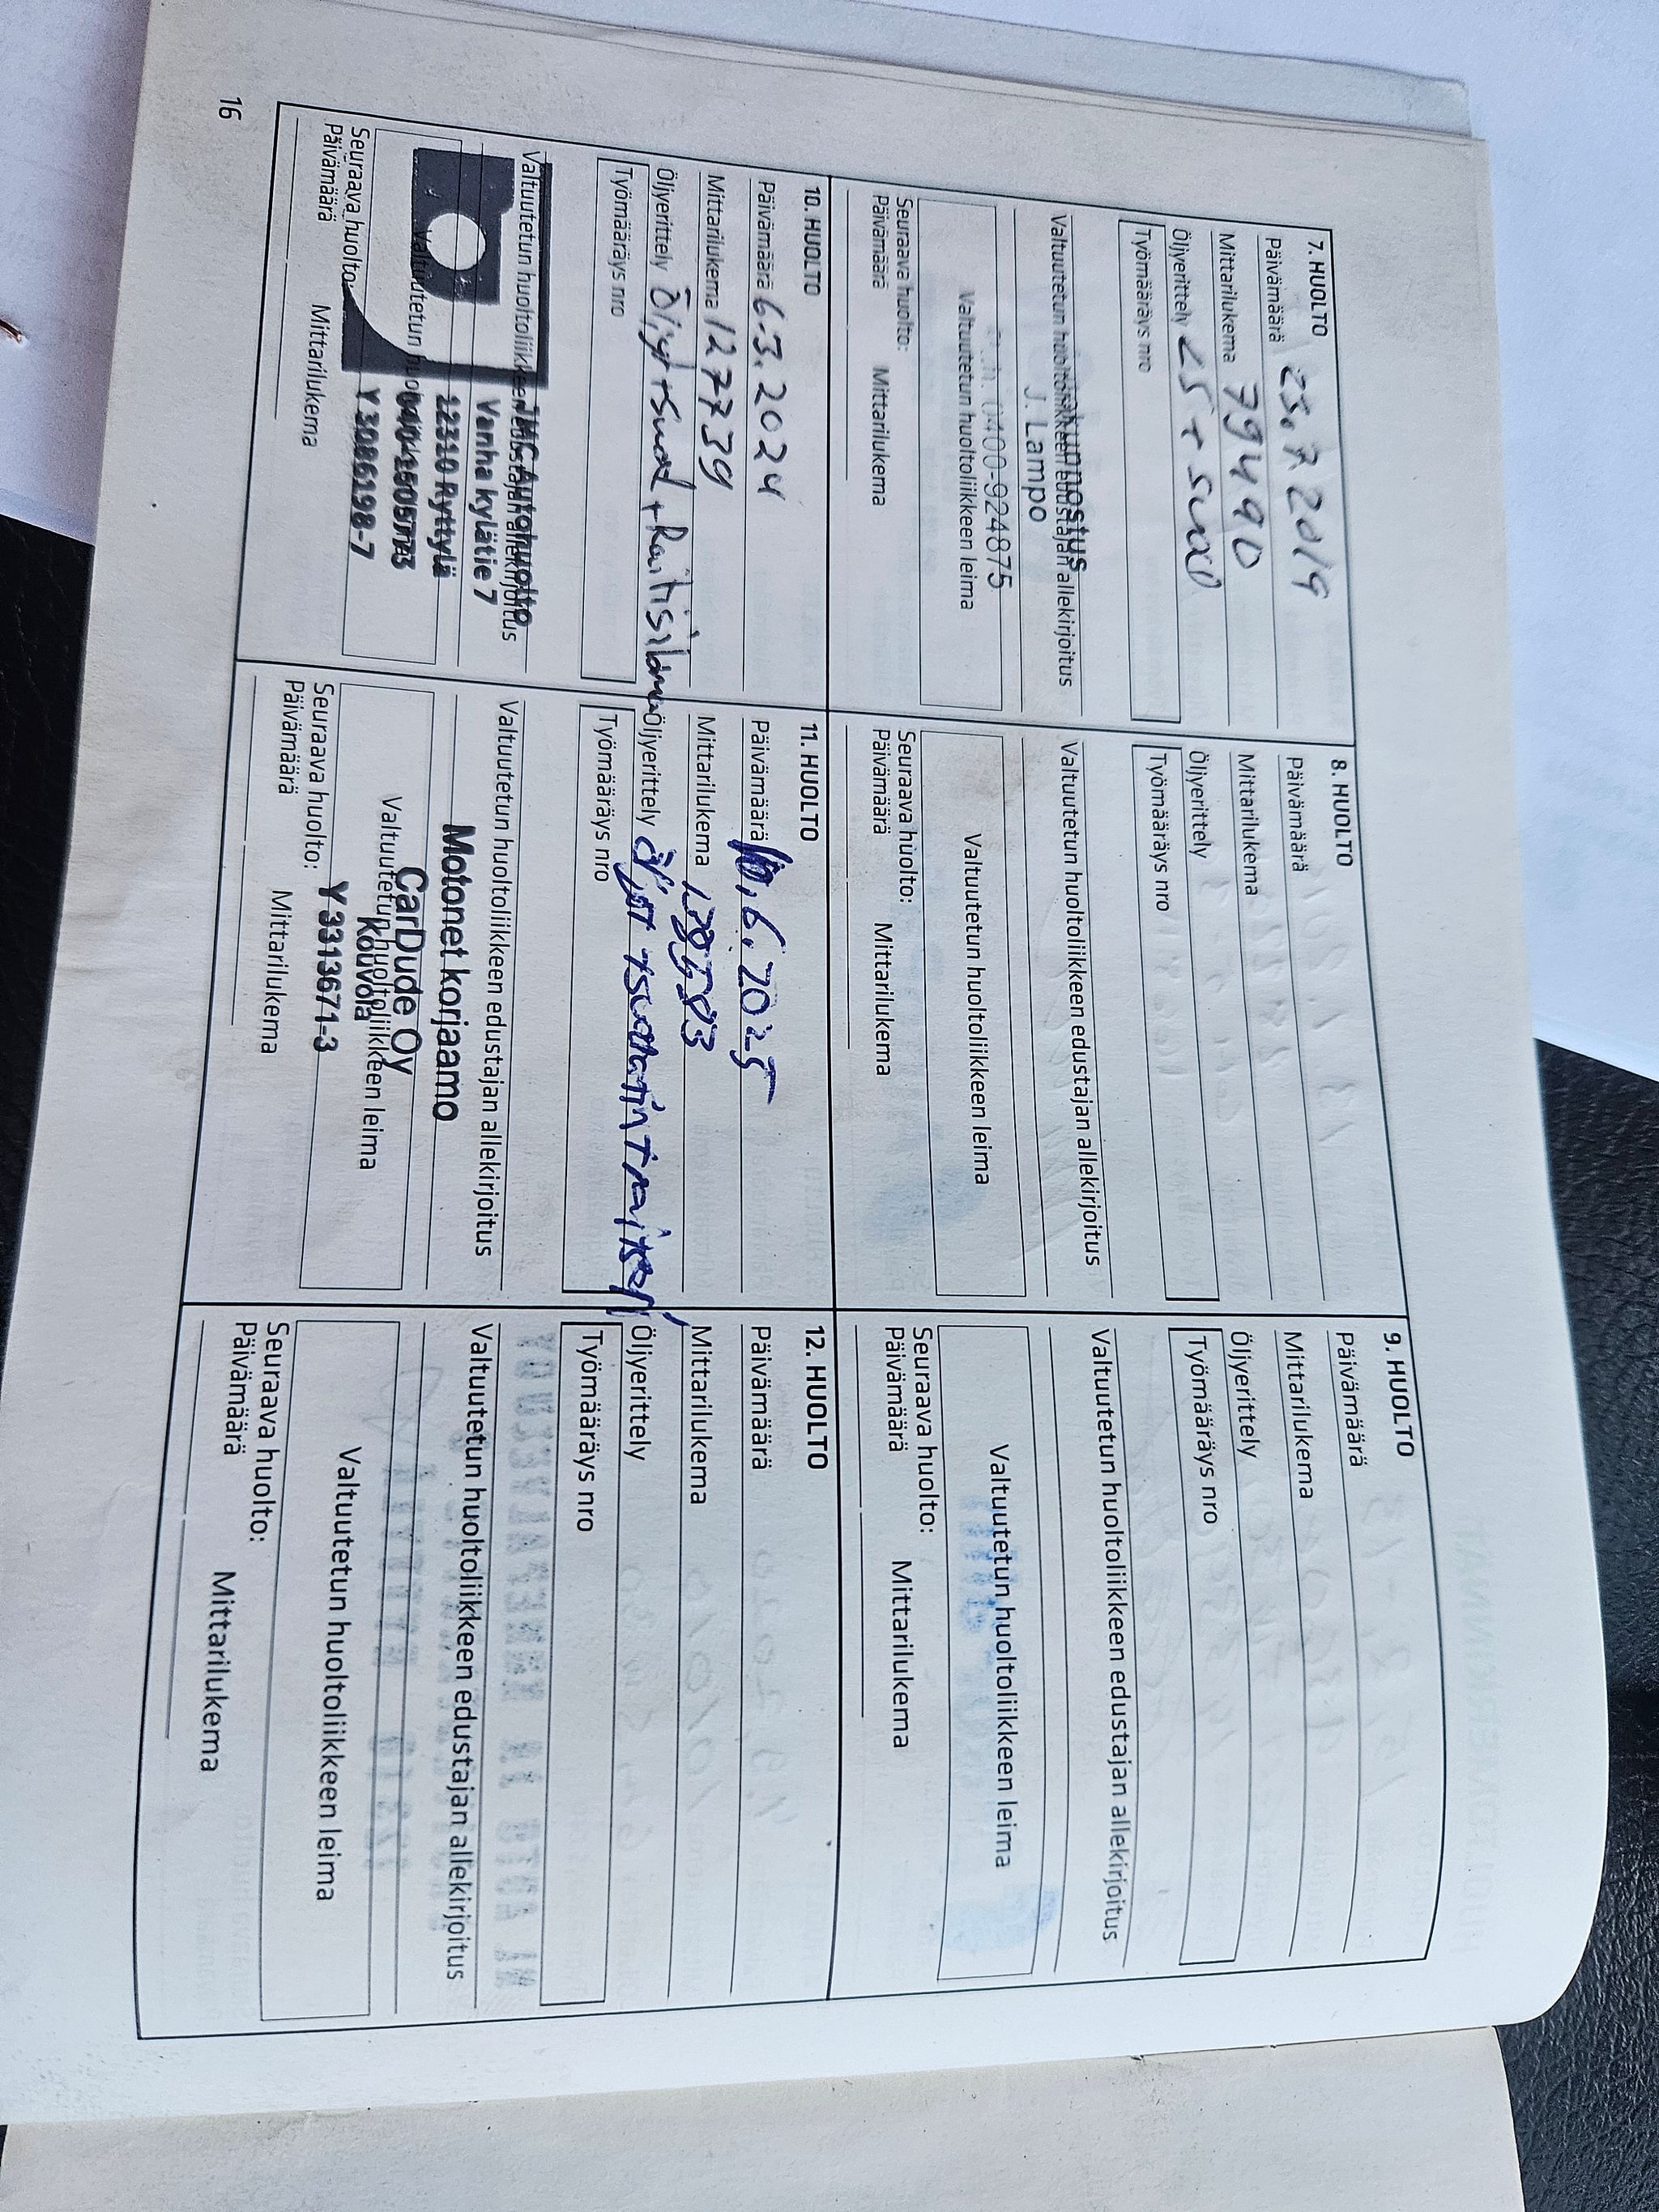 7. HUOLTO
Päivämäärä 23.7.2019
Mittarilukema 79490
Öljyerittely LS + suod
Työmääräys nro
Valtuutetun huoltoliikkeen edustajan allekirjoitus
J. Lampo
0400-924875
Valtuutetun huoltoliikkeen leima
Seuraava huolto:
Päivämäärä Mittarilukema
8. HUOLTO
Päivämäärä
Mittarilukema
Öljyerittely
Työmääräys nro
Valtuutetun huoltoliikkeen edustajan allekirjoitus
Valtuutetun huoltoliikkeen leima
Seuraava huolto:
Päivämäärä Mittarilukema
9. HUOLTO
Päivämäärä
Mittarilukema
Öljyerittely
Työmääräys nro
Valtuutetun huoltoliikkeen edustajan allekirjoitus
Valtuutetun huoltoliikkeen leima
Seuraava huolto:
Päivämäärä Mittarilukema
10. HUOLTO
Päivämäärä 6.3.2024
Mittarilukema 127739
Öljyerittely Öljyt+suod + Raitisilma
Työmääräys nro
Valtuutetun huoltoliikkeen edustajan allekirjoitus
Autohuolto
Vanha kylätie 7
12310 Ryttylä
Valtuutetun
Y 3086198-7
Seuraava huolto:
Päivämäärä Mittarilukema
11. HUOLTO
Päivämäärä 6.2025
Mittarilukema
Öljyerittely öljyt +suodatin +
Työmääräys nro
Valtuutetun huoltoliikkeen edustajan allekirjoitus
Motonet korjaamo
CarDude Oy
Valtuutetun huoltoliikkeen leima
Kouvola
Y 3313671-3
Seuraava huolto:
Päivämäärä Mittarilukema
12. HUOLTO
Päivämäärä
Mittarilukema
Öljyerittely
Työmääräys nro
Valtuutetun huoltoliikkeen edustajan allekirjoitus
Valtuutetun huoltoliikkeen leima
Seuraava huolto:
Päivämäärä Mittarilukema
16